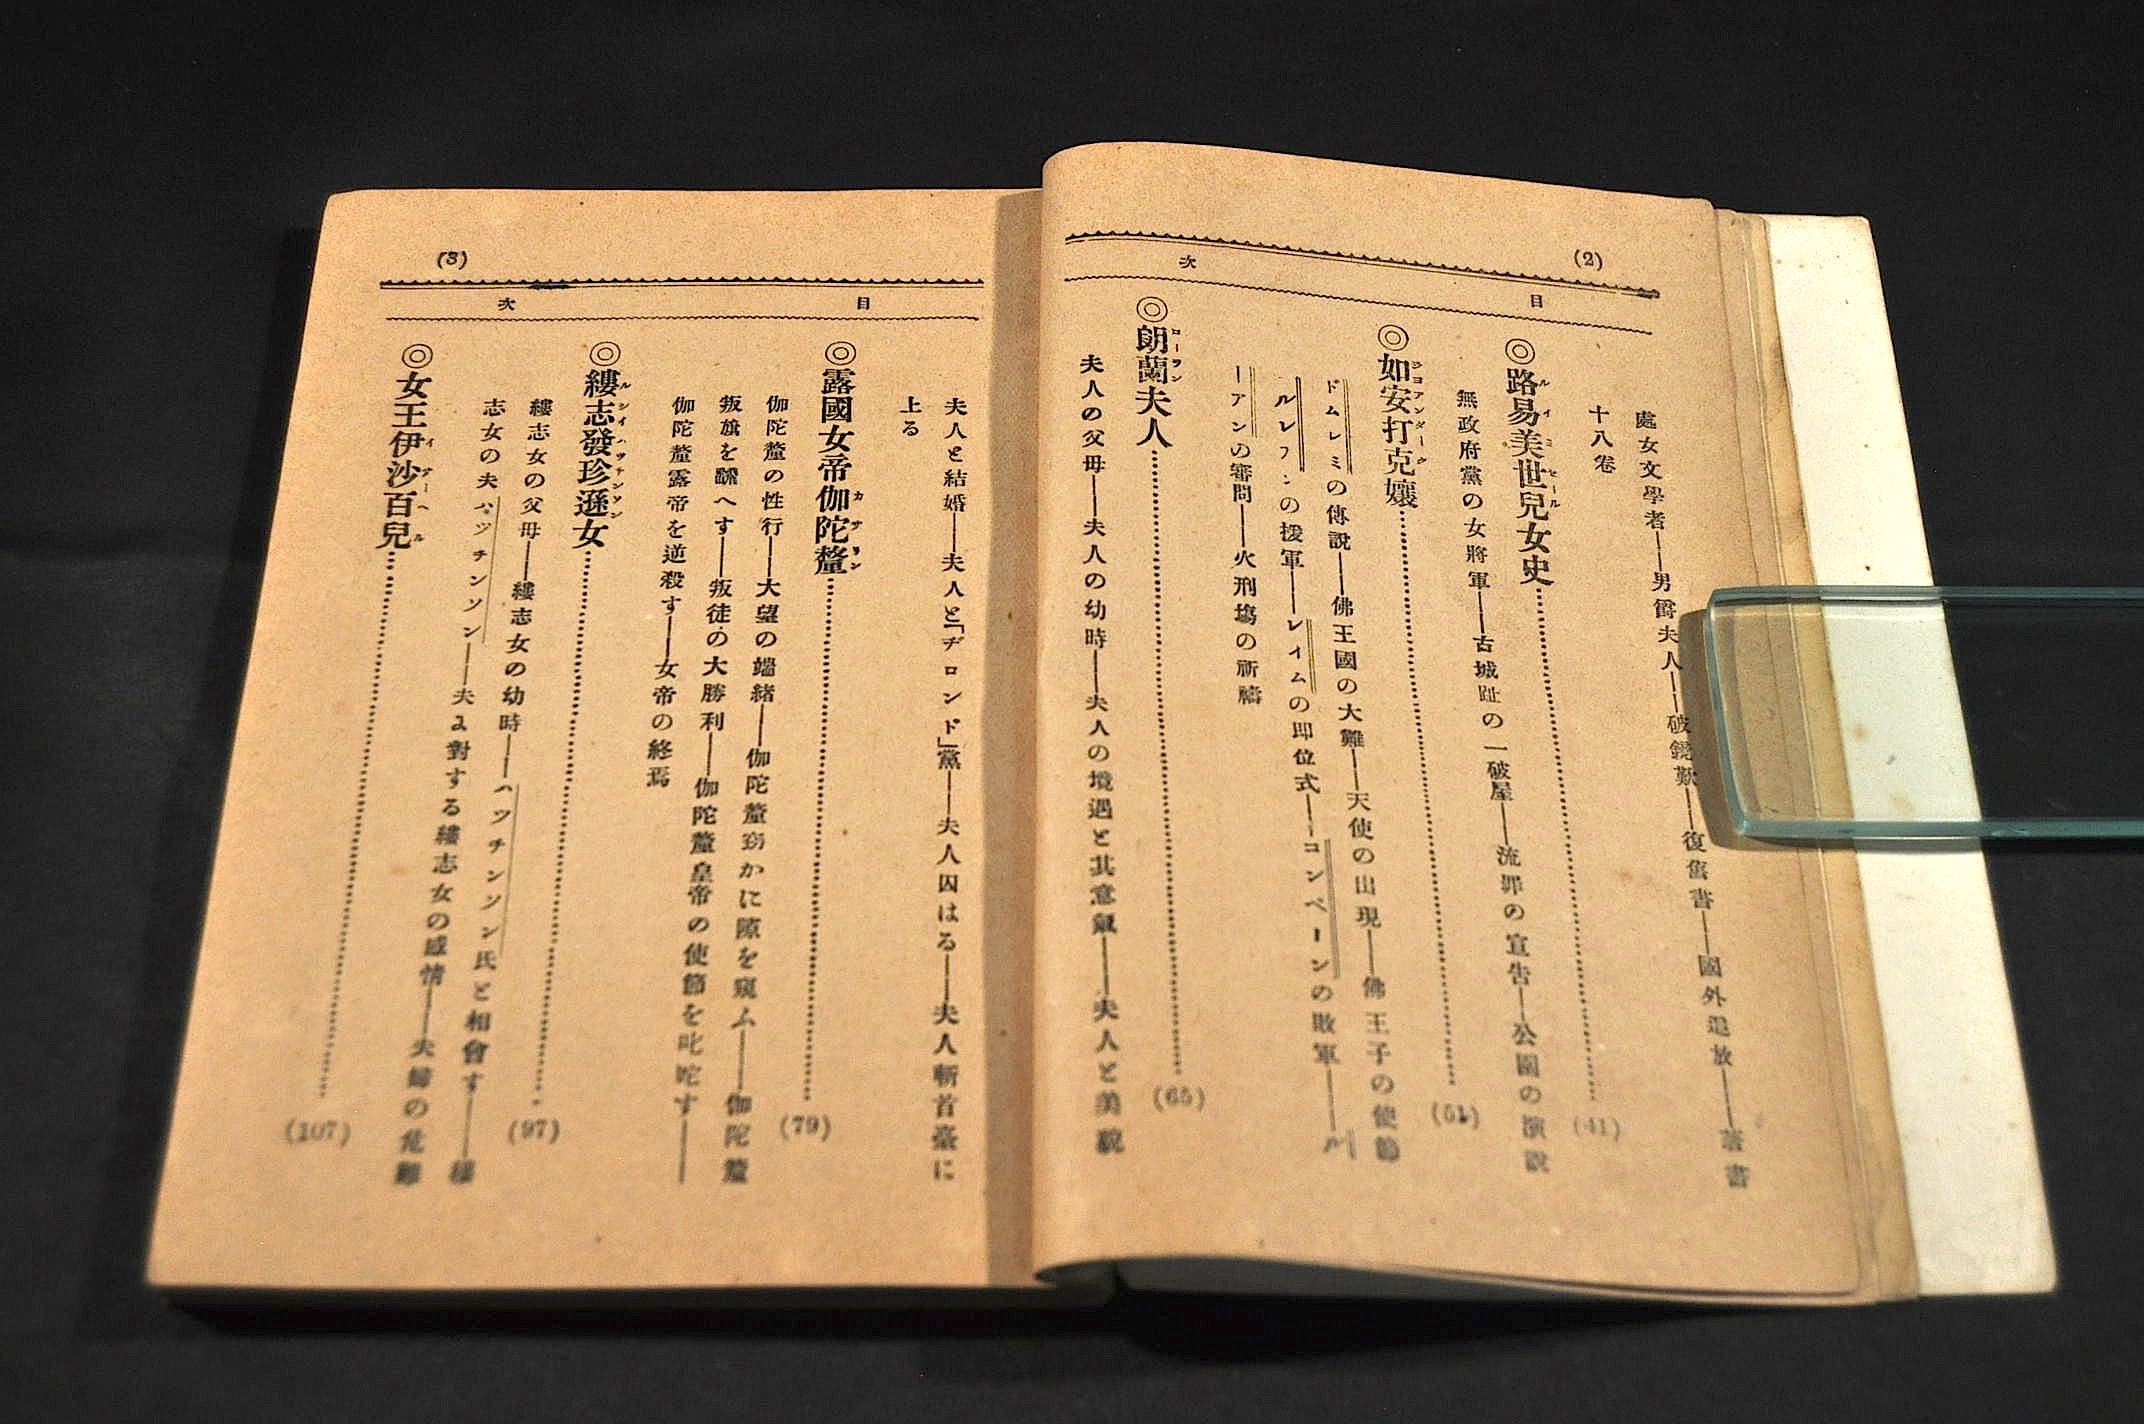 (2)
目 次
處女文學者――男爵夫人――破鏡歎――復舊書――國外追放――著書
十八卷
◎路易美世兒女史 (41)
ルイミセール
無政府黨の女將軍――古城趾の一破屋――流罪の宣告――公園の演説
◎如安打克孃 (51)
ジヨアンダーク
ドムレミの傳説――佛王國の大難――天使の出現――佛王子の使節
ルレアンの援軍――レイムの即位式――コンペーンの敗軍――ル
ーアンの審問――火刑塲の祈禱
◎朗蘭夫人 (65)
ローラン
夫人の父母――夫人の幼時――夫人の境遇と其意氣――夫人と美貌
(3)
目 次
夫人と結婚――夫人と「ヂロンド」黨――夫人囚はる――夫人斬首臺に
上る
◎露國女帝伽陀釐 (79)
カサリン
伽陀釐の性行――大望の端緒――伽陀釐窃かに隙を窺ふ――伽陀釐
叛旗を飜へす――叛徒の大勝利――伽陀釐皇帝の使節を叱咤す――
伽陀釐露帝を逆殺す――女帝の終焉
◎縷志發珍遜女 (97)
ルシイハツチンソン
縷志女の父母――縷志女の幼時――ハツチンソン氏と相會す――縷
志女の夫ハツチンソン――夫に對する縷志女の感情――夫婦の危難
◎女王伊沙百兒 (107)
イサーベル